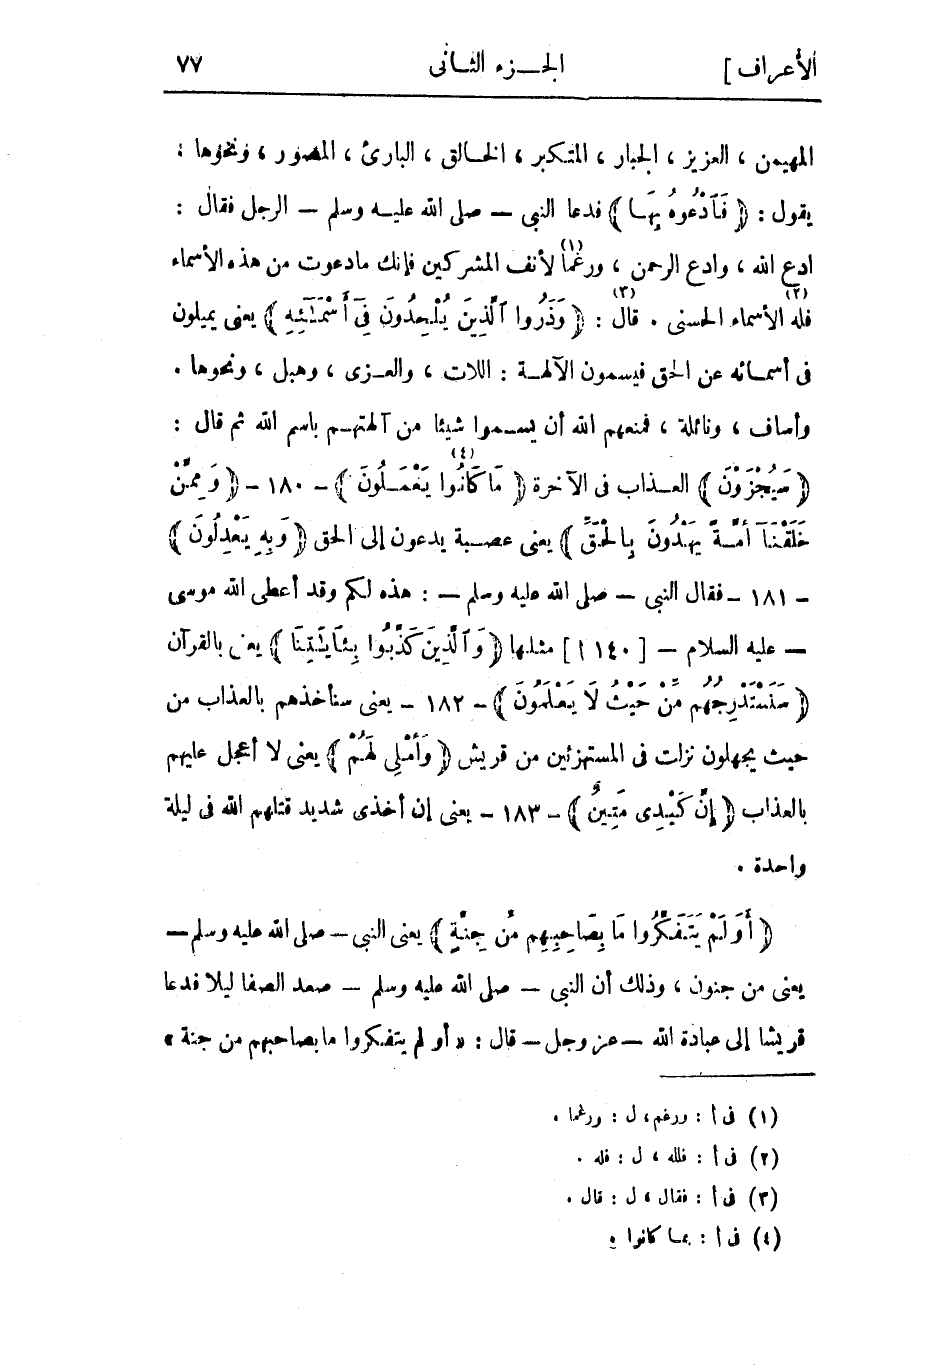 الأعراف ] الجـزء الثـانى ٧٧
المهيمن ، العزيز ، الجبار ، المتكبر ، الخـالق ، البارئ ، المصور ، ونحوها :
يقول : ﴿ فَٱدْعُوهُ بِهَـا ﴾ فدعا النبى — صلى الله عليـه وسلم — الرجل فقال :
ادع الله ، وادع الرحمن ، ورغماً(١) لأنف المشركين فإنك مادعوت من هذه الأسماء
فله(٢) الأسماء الحسنى . قال(٣) : ﴿ وَذَرُوا ٱلَّذِينَ يُلْحِدُونَ فِىٓ أَسْمَـٰٓئِهِ ﴾ يعنى يميلون
فى أسمـائه عن الحق فيسمون الآلهـة : اللات ، والعـزى ، وهبل ، ونحوها .
وأساف ، ونائلة ، فمنعهم الله أن يسـموا شيئا من آلهتهـم باسم الله ثم قال :
﴿ سَيُجْزَوْنَ ﴾ العـذاب فى الآخرة ﴿ مَا كَانُوا(٤) يَعْمَـلُونَ ﴾ - ١٨٠ - ﴿ وَمِمَّنْ
خَلَقْنَآ أُمَّـةٌ يَهْدُونَ بِالْحَقِّ ﴾ يعنى عصـبة يدعون إلى الحق ﴿ وَبِهِ يَعْدِلُونَ ﴾
- ١٨١ - فقال النبى — صلى الله عليه وسلم — : هذه لكم وقد أعطى الله موسى
— عليه السلام — [ ١٤٠ أ ] مثلها ﴿ وَٱلَّذِينَ كَذَّبُوا بِـَٔايَـٰتِنَا ﴾ يعنى بالقرآن
﴿ سَنَسْتَدْرِجُهُم مِّنْ حَيْثُ لَا يَعْلَمُونَ ﴾ - ١٨٢ - يعنى سنأخذهم بالعذاب من
حيث يجهلون نزلت فى المستهزئين من قريش ﴿ وَأُمْلِى لَهُمْ ﴾ يعنى لا أعجل عليهم
بالعذاب ﴿ إِنَّ كَيْدِى مَتِينٌ ﴾ - ١٨٣ - يعنى إن أخذى شديد قتلهم الله فى ليلة
واحدة .
﴿ أَوَلَمْ يَتَفَكَّرُوا مَا بِصَاحِبِهِم مِّن جِنَّةٍ ﴾ يعنى النبى — صلى الله عليه وسلم —
يعنى من جنون ، وذلك أن النبى — صلى الله عليه وسلم — صعد الصفا ليلا فدعا
قريشا إلى عبادة الله — عز وجل — قال : « أو لم يتفكروا ما بصاحبهم من جنة »
(١) فى أ : ورغم ، ل : ورغما .
(٢) فى أ : فلله ، ل : فله .
(٣) فى أ : فقال ، ل : قال .
(٤) فى أ : بمـا كانوا .